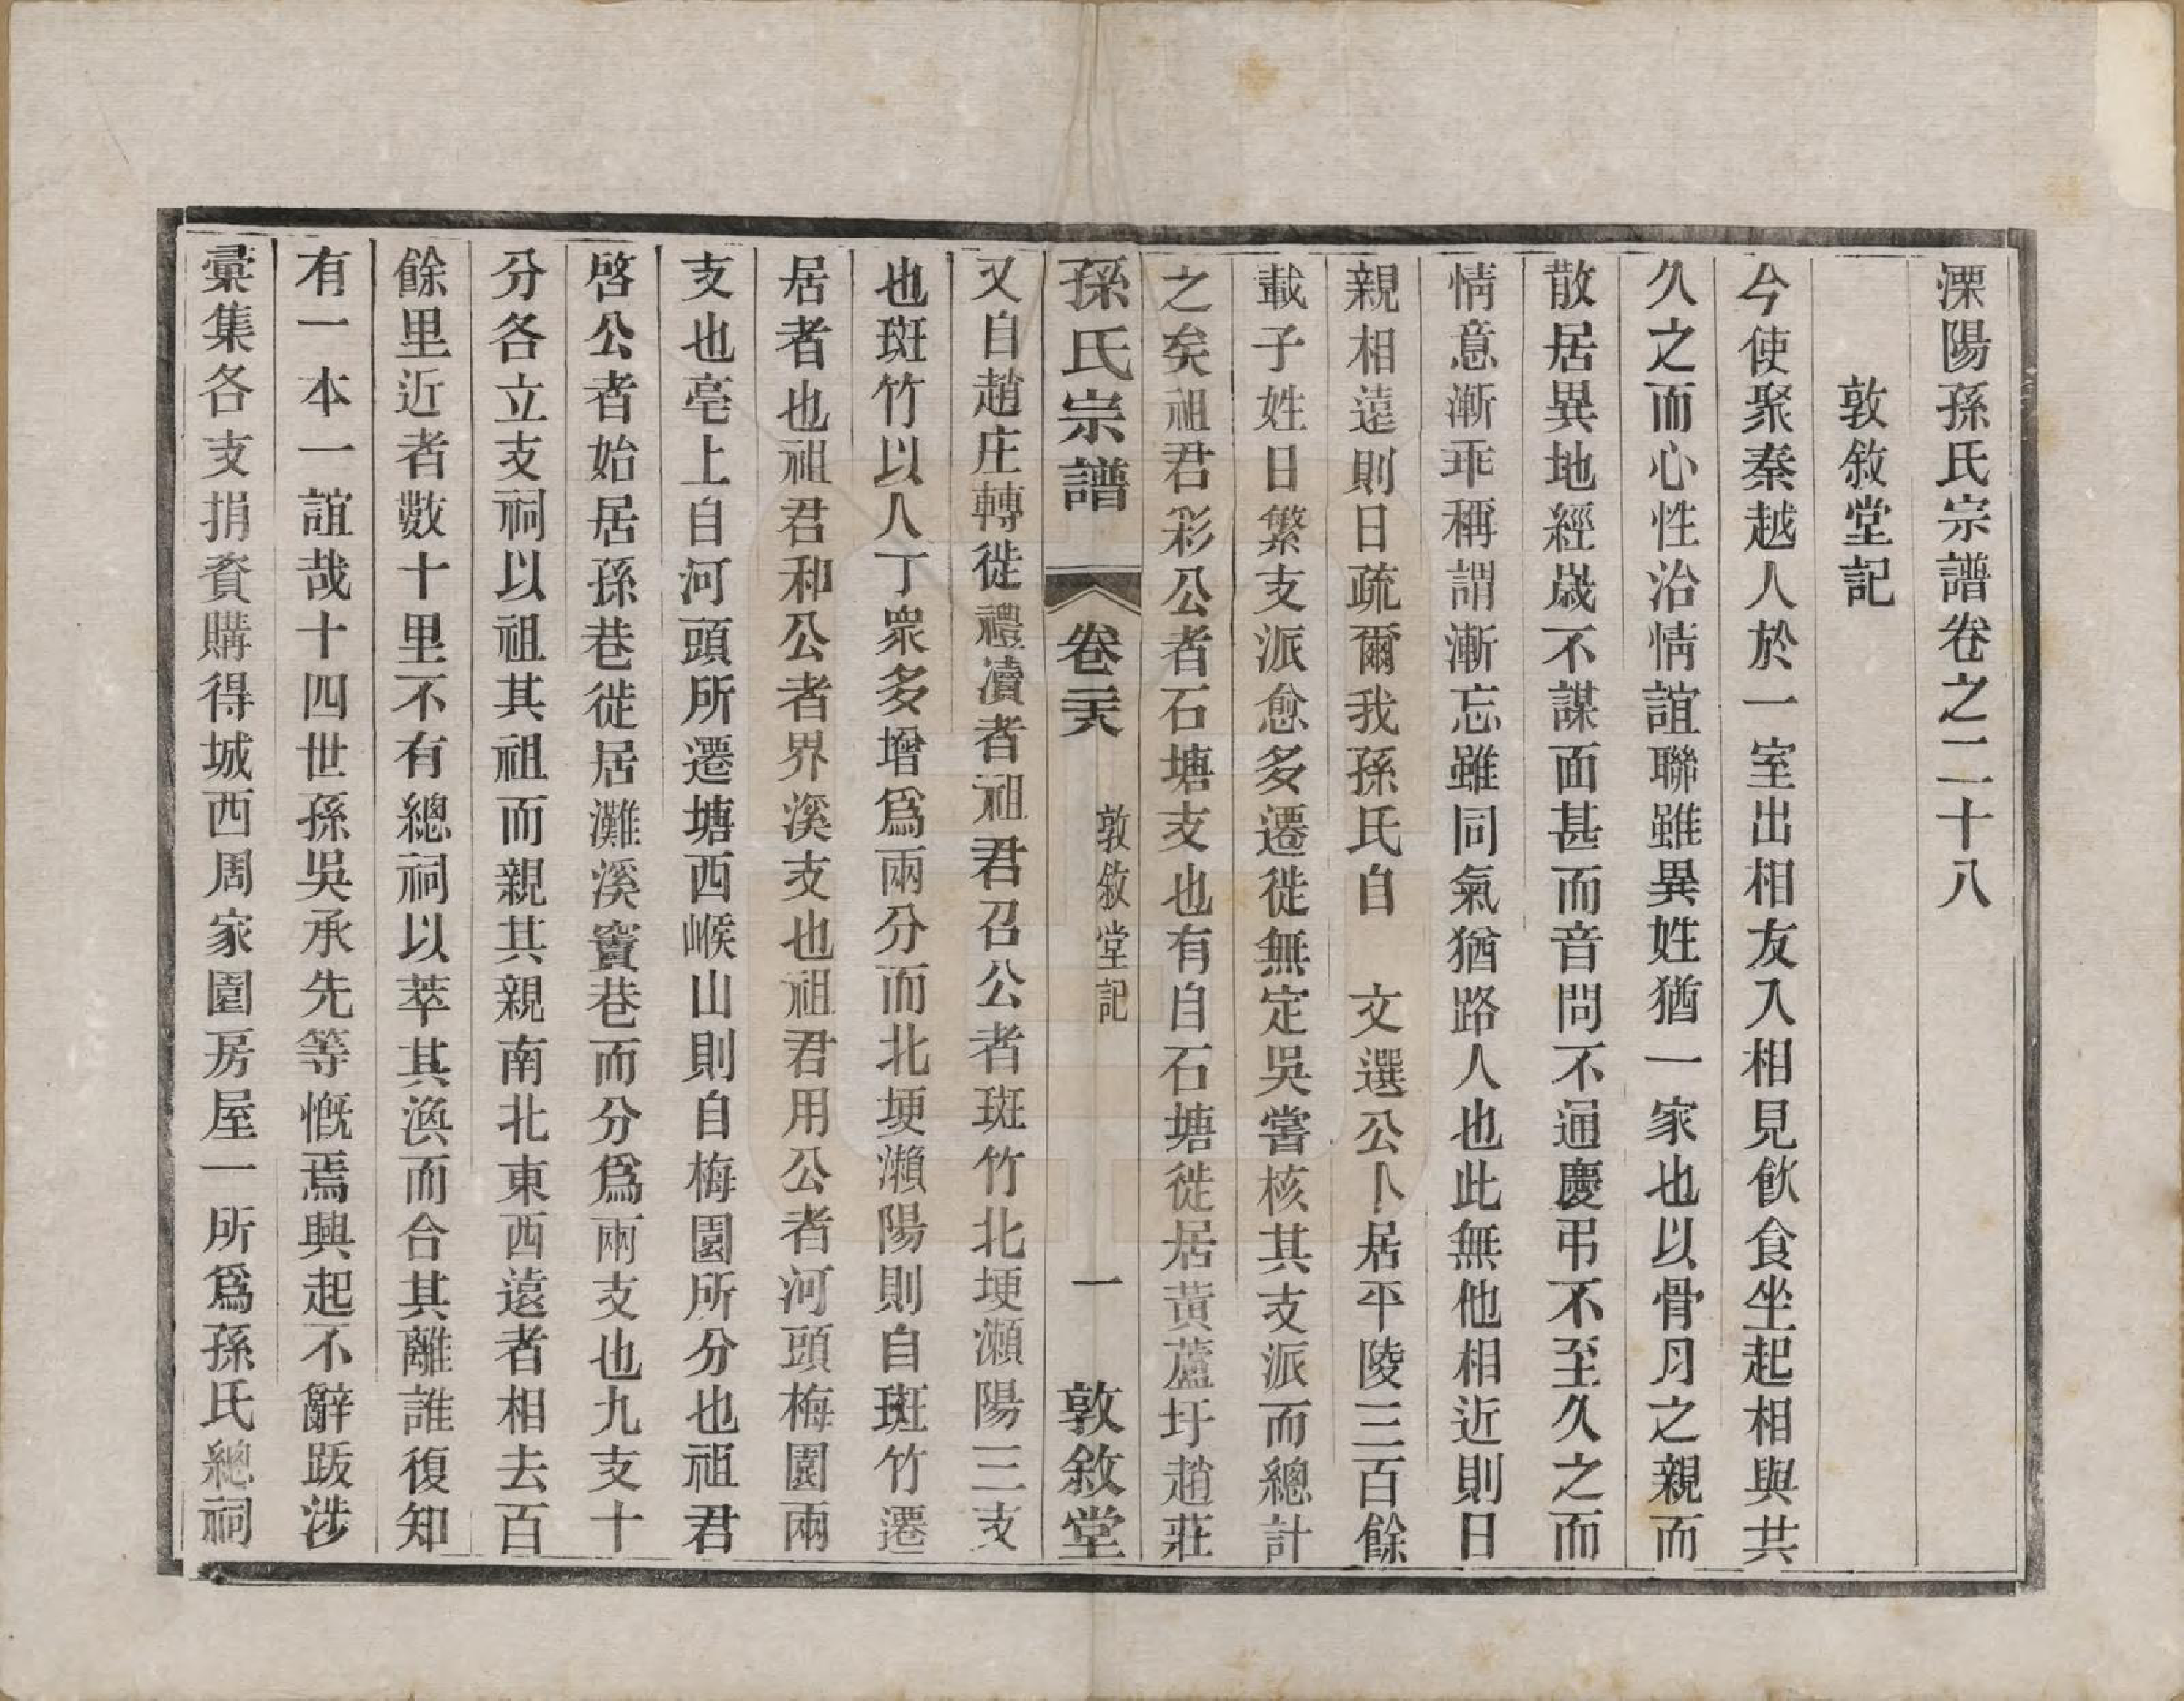 溧陽孫氏宗譜卷之二十八
敦敘堂記
今使聚秦越人於一室出相友入相見飲食坐起相與共
久之而心性洽情誼聯雖異姓猶一家也以骨月之親而
散居異地經歲不謀面甚而音問不通慶弔不至久之而
情意漸乖稱謂漸忘雖同氣猶路人也此無他相近則日
親相遠則日疏爾我孫氏自　文選公卜居平陵三百餘
載子姓日繁支派愈多遷徙無定吳嘗核其支派而總計
之矣祖君彩公者石塘支也有自石塘徙居黃蘆圩趙莊
孫氏宗譜　卷二十八　敦敘堂記　一　敦敘堂
又自趙庄轉徙禮瀆者祖君召公者斑竹北埂瀨陽三支
也斑竹以人丁眾多增爲兩分而北埂瀨陽則自斑竹遷
居者也祖君和公者界溪支也祖君用公者河頭梅園兩
支也亳上自河頭所遷塘西㬋山則自梅園所分也祖君
啓公者始居孫巷徙居灘溪竇巷而分爲兩支也九支十
分各立支祠以祖其祖而親其親南北東西遠者相去百
餘里近者數十里不有總祠以萃其渙而合其離誰復知
有一本一誼哉十四世孫吳承先等慨焉興起不辭跋涉
彙集各支捐資購得城西周家園房屋一所爲孫氏總祠